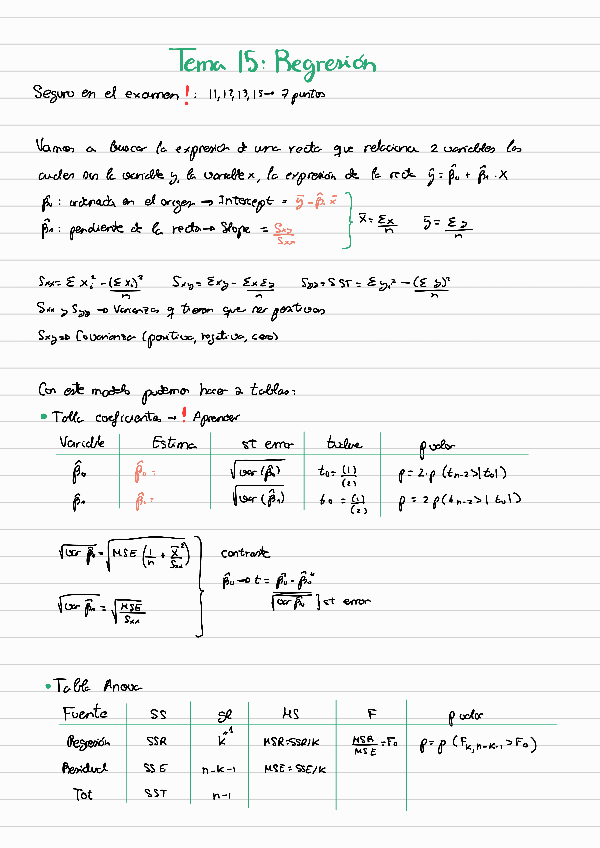 Tema 15: Regresión
Seguro en el examen!: 11,12,13,15 → 7 puntos
Vamos a buscar la expresión de una recta que relaciona 2 variables las
cuales son la variable y, la variable x, la expresión de la recta ŷ = β̂₀ + β̂₁ · x
β̂₀: ordenada en el origen → Intercept = ȳ - β̂₁ x̄
x̄ = Σx/n ȳ = Σy/n
β̂₁: pendiente de la recta → Slope = Sxy/Sxx
Sxx = Σxᵢ² - (Σxᵢ)²/n Sxy = Σxy - ΣxΣy/n Syy = SST = Σyᵢ² - (Σy)²/n
Sxx y Syy → Varianzas y tienen que ser positivas
Sxy → Covarianza (positiva, negativa, cero)
Con este modelo podemos hacer 2 tablas:
• Tabla coeficientes → ! Aprender
Variable Estima st error tvalue pvalor
β̂₀ β̂₀ = √var(β̂₀) t₀ = (1)/(2) p = 2·p(tn-2 > |t₀|)
β̂₁ β̂₁ = √var(β̂₁) t₀ = (1)/(2) p = 2p(tn-2 > |t₀|)
√var β̂₀ = √MSE(1/n + x̄²/Sxx) contraste
β̂₀ → t = β̂₀ - β̂₀*
√var β̂₁ = √MSE/Sxx √var β̂₀ ] st error
• Tabla Anova
Fuente SS gl MS F p valor
Regresión SSR k=1 MSR=SSR/K MSR/MSE = F₀ p = p(Fk,n-k-1 > F₀)
Residual SSE n-k-1 MSE=SSE/K
Tot SST n-1